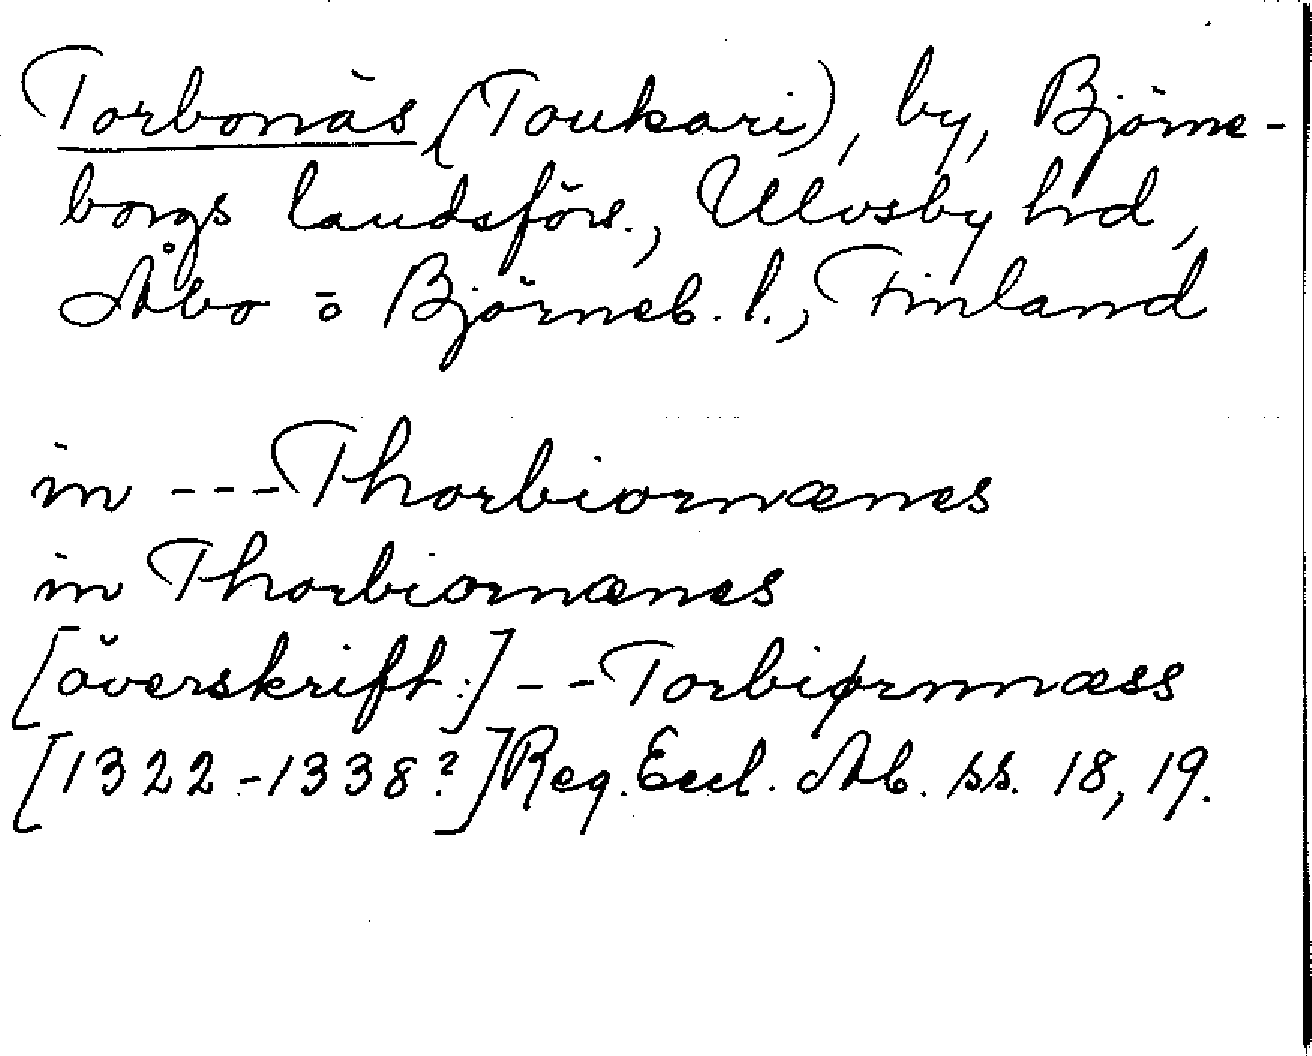 Torbonäs (Toukari), by, Björne-
borgs landsförs., Ulvsby hrd,
Åbo o Björneb. l., Finland
in --- Thorbiornænes
in Thorbiornænes
[överskrift:] -- Torbiørnnæss
[1322-1338?] Reg. Eccl. Ab. ss. 18, 19.